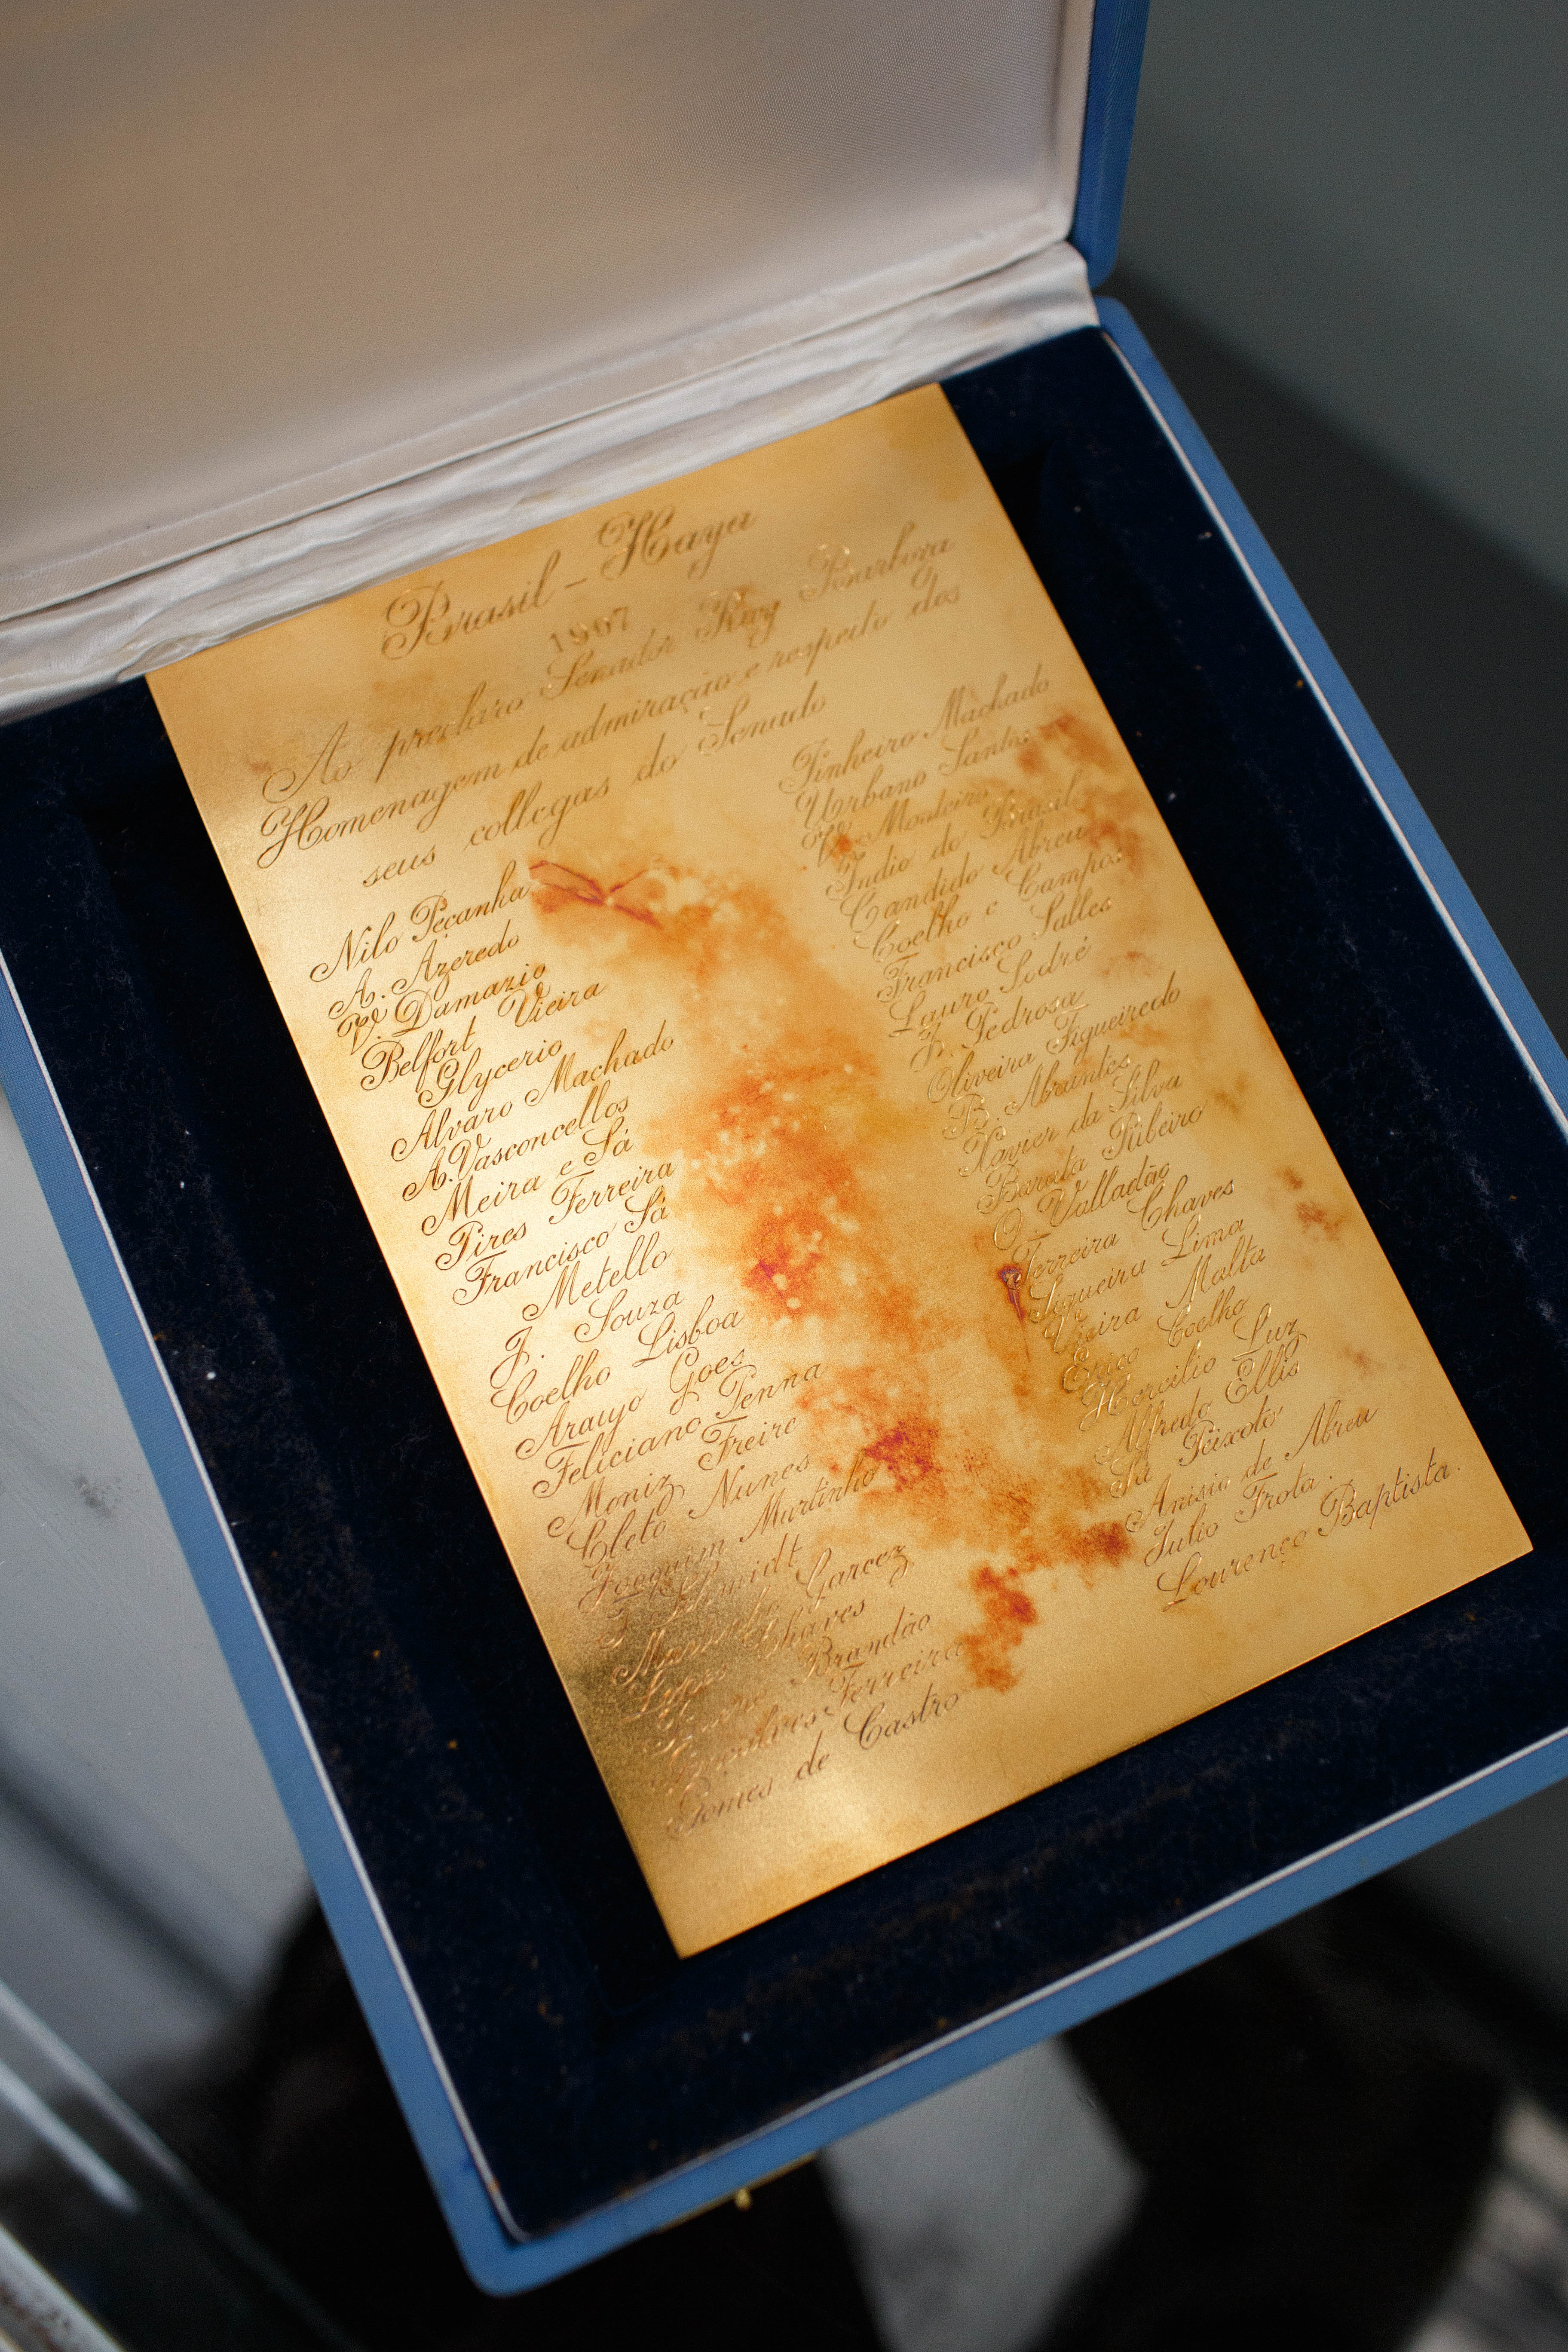 Brasil - Haya
1907
Ao preclaro Senador Ruy Barboza
Homenagem de admiração e respeito dos
seus collegas do Senado
Nilo Peçanha
A. Azeredo
V. Damazio
Belfort Vieira
Glycerio
Alvaro Machado
A. Vasconcellos
Meira e Sá
Pires Ferreira
Francisco Sá
Metello
J. Souza
Coelho Lisboa
Araujo Goes
Feliciano Penna
Moniz Freire
Cleto Nunes
Joaquim Murtinho
F. Schmidt
Martinho Garcez
Lopes Chaves
Brandão
Gonçalves Ferreira
Gomes de Castro
Pinheiro Machado
Urbano Santos
Monteiro
Indio do Brasil
Candido Abreu
Coelho e Campos
Francisco Salles
Lauro Sodré
Pedrosa
Oliveira Figueiredo
B. Abrantes
Xavier da Silva
Barata Ribeiro
O. Valladão
Ferreira Chaves
Siqueira Lima
Vieira Malta
Erico Coelho
Hercilio Luz
Alfredo Ellis
Sá Peixoto
Anisio de Abreu
Julio Frota.
Lourenço Baptista.